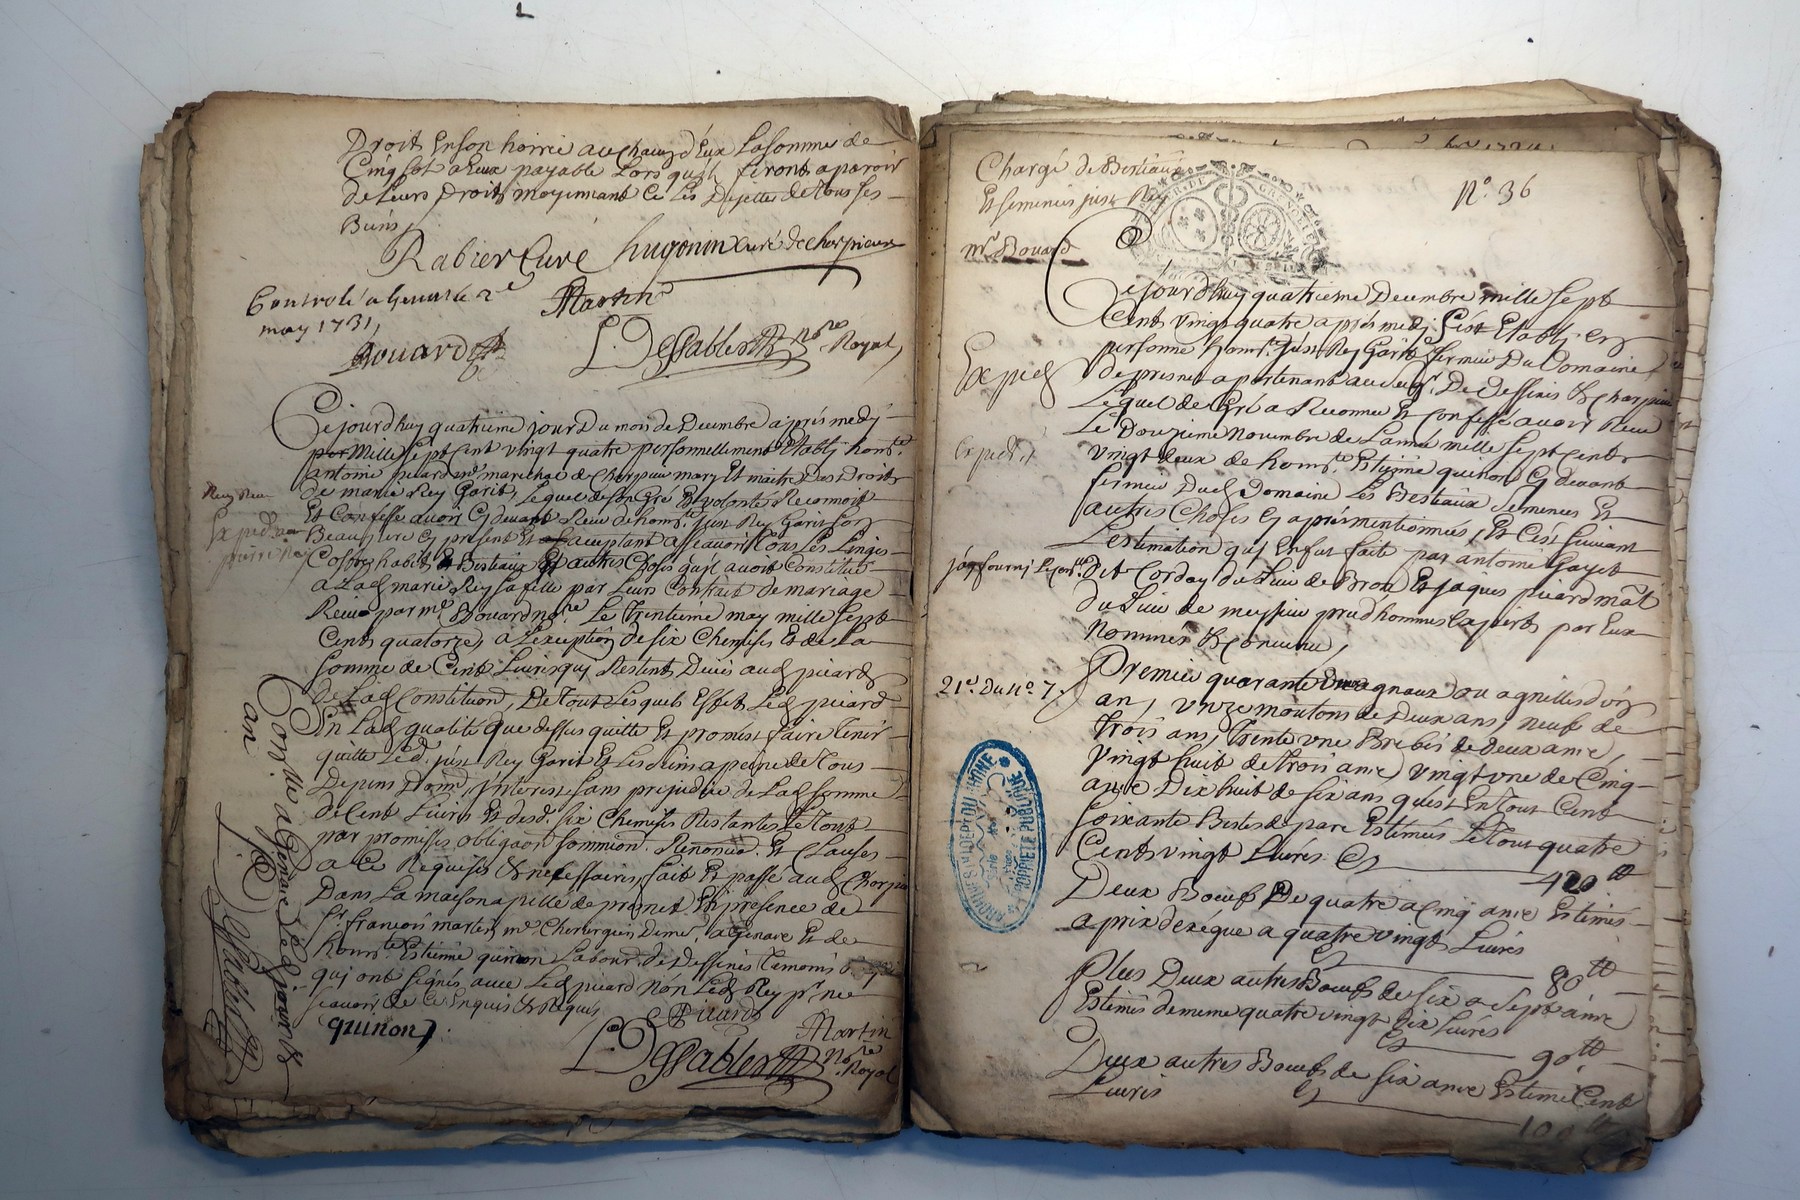 Droit En son hoirie a un chacun d'Eux La somme de
Cinq sol a Eux payable Lors qu'ils feront aparoir
de Leurs Droits moyennant ce Les Dejette de tous ses
Biens,
Rabier Curé hugonin curé de cherpieux
Controlé a Genas le 2e
may 1731,
Martin
Bouard
L. DesSables nore Royal,
Cejourd'huy quatrieme jour Du mois de Decembre apres medy
par Mille Sept Cent vingt quatre personnellement Etably honte
antoine picard md marechal de Cherpieu mary Et maitre Des Droits
de marie Rey Garit, Lequel de son Gré Et volonté Reconnoit
Et Confesse avoir cy devant Receu de honte just Rey Garit son
Beau pere cy present Et acceptant asseavoir tous Les Linges
Coffre habits Bestiaux Et autres Choses qu'il avoit Constitué
a Lade marie Rey sa fille par Leurs Contrat de mariage
Receu par me Bouard nore Le trentieme may mille Sept
Cent quatorze, a L'exception de six Chemises Et de La
somme de Cent Livres qui Restent Deues aud picard
de Lad Constitution, De tout Lesquels Effets Led picard
En Lad qualité que dessus quitte Et promest faire tenir
quitte Led. just Rey Garit Et Les siens a peine de tous
Depens Dom, jnterest sans prejudice de Lad somme
de Cent Livres Et desd. six Chemises Restantes Le tout
par promesses obligaon soumion Renoncia. Et Clauses
a ce Requises & necessaires, fait Et passé aud Cherpieu
Dans La maison En presence de
Sr. françois martin me Chirurgien Demt. a Genave Et de
honte. Estienne quinon Labour. de Dessines temoins
qui ont signés avec Led picard non Led Rey pr ne
sçavoir de ce Enquis & Requis,
quinon
Picard
Martin
L. DesSables Nore Royal
Conlle a Genas Led jour
an
Chargé de Bestiaux
Et semences just Rey
No. 36
mr Bouard
Cejourd'huy quatrieme Decembre mille Sept
Cent vingt quatre apres medy S'est Etably En
personne honte. just Rey Garit fermier Du Domaine
de presnes apartenant au seigr. De Dessines & Charpieu
Expiet
Lequel de Gré a Reconneu Et Confessé avoir Receu
Le Douzieme novembre de L'année mille Sept Cent
vingt deux de honte. Estienne quinon cy devant
fermier Dud Domaine Les Bestiaux Semences Et
autres Choses cy apres mentionnées, Et C'est suivant
L'estimation qui En fut faite par antoine Gayet
Dit Corday du Lieu de Bron Et jaques picard mat
du Lieu de meyssieu prud hommes Experts par Eux
Nommés & Convenu,
Premier quarante agneaux ou agnelles d'un
21e. Du no. 7.
an, vnze moutons de Deux ans, neuf de
trois ans, trente vne Brebis de Deux ans,
vingt huit de trois ans, vingt vne de Cinq
ans Dix huit de six ans, qu'est En tout Cent
soixante Bestes de parc Estimées Le tout quatre
Cent vingt Livres Cy 420 tt
Deux Boeufs De quatre a cinq ans Estimés
a prix d'exegue a quatre vingt Livres
Cy 80 tt
Plus Deux autres Boeufs de six a sept ans
Estimés de meme quatre vingt dix Livres
Cy 90 tt
Deux autres Boeufs de six ans Estimé Cent
Livres Cy 100 tt
ARCHIVES DU DEPT DU RHONE
PROPRIETE PUBLIQUE